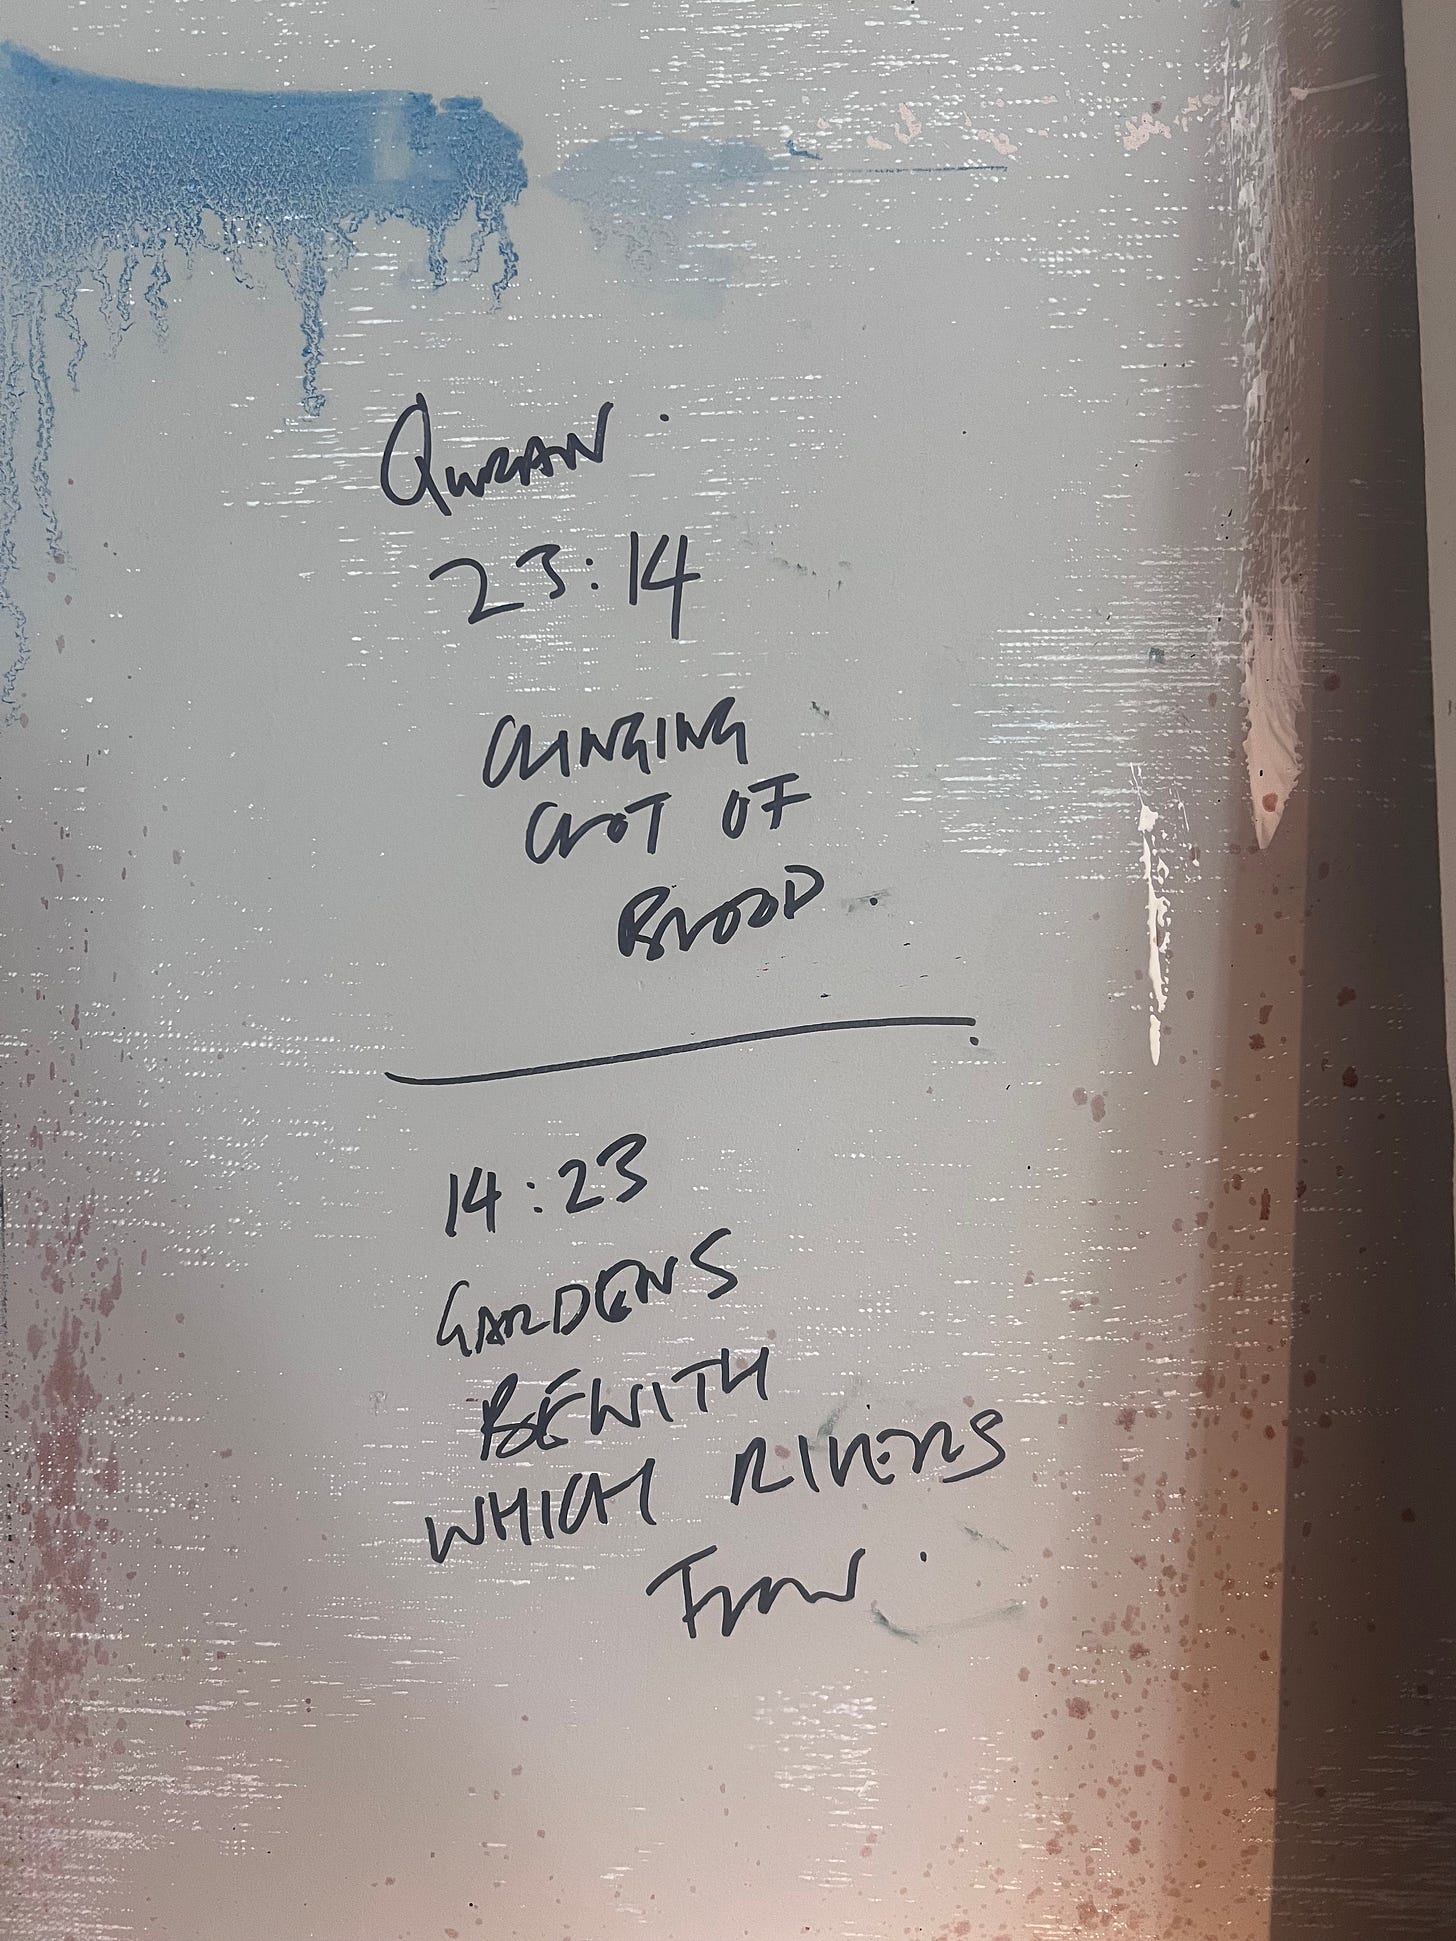 QURAN.
23:14
CLINGING
CLOT OF
BLOOD
14:23
GARDENS
BEWITH
WHICH RIVERS
FLOW.